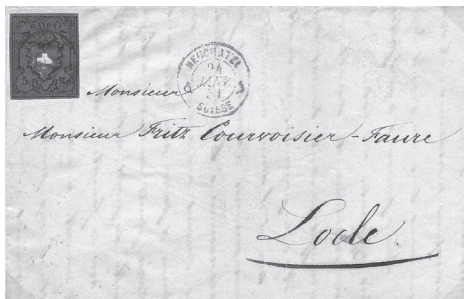 RAYON I
5 Rp
NEUCHATEL
24
JANV
51
SUISSE
Monsieur
Monsieur Fritz Courvoisier-Faure
Locle.